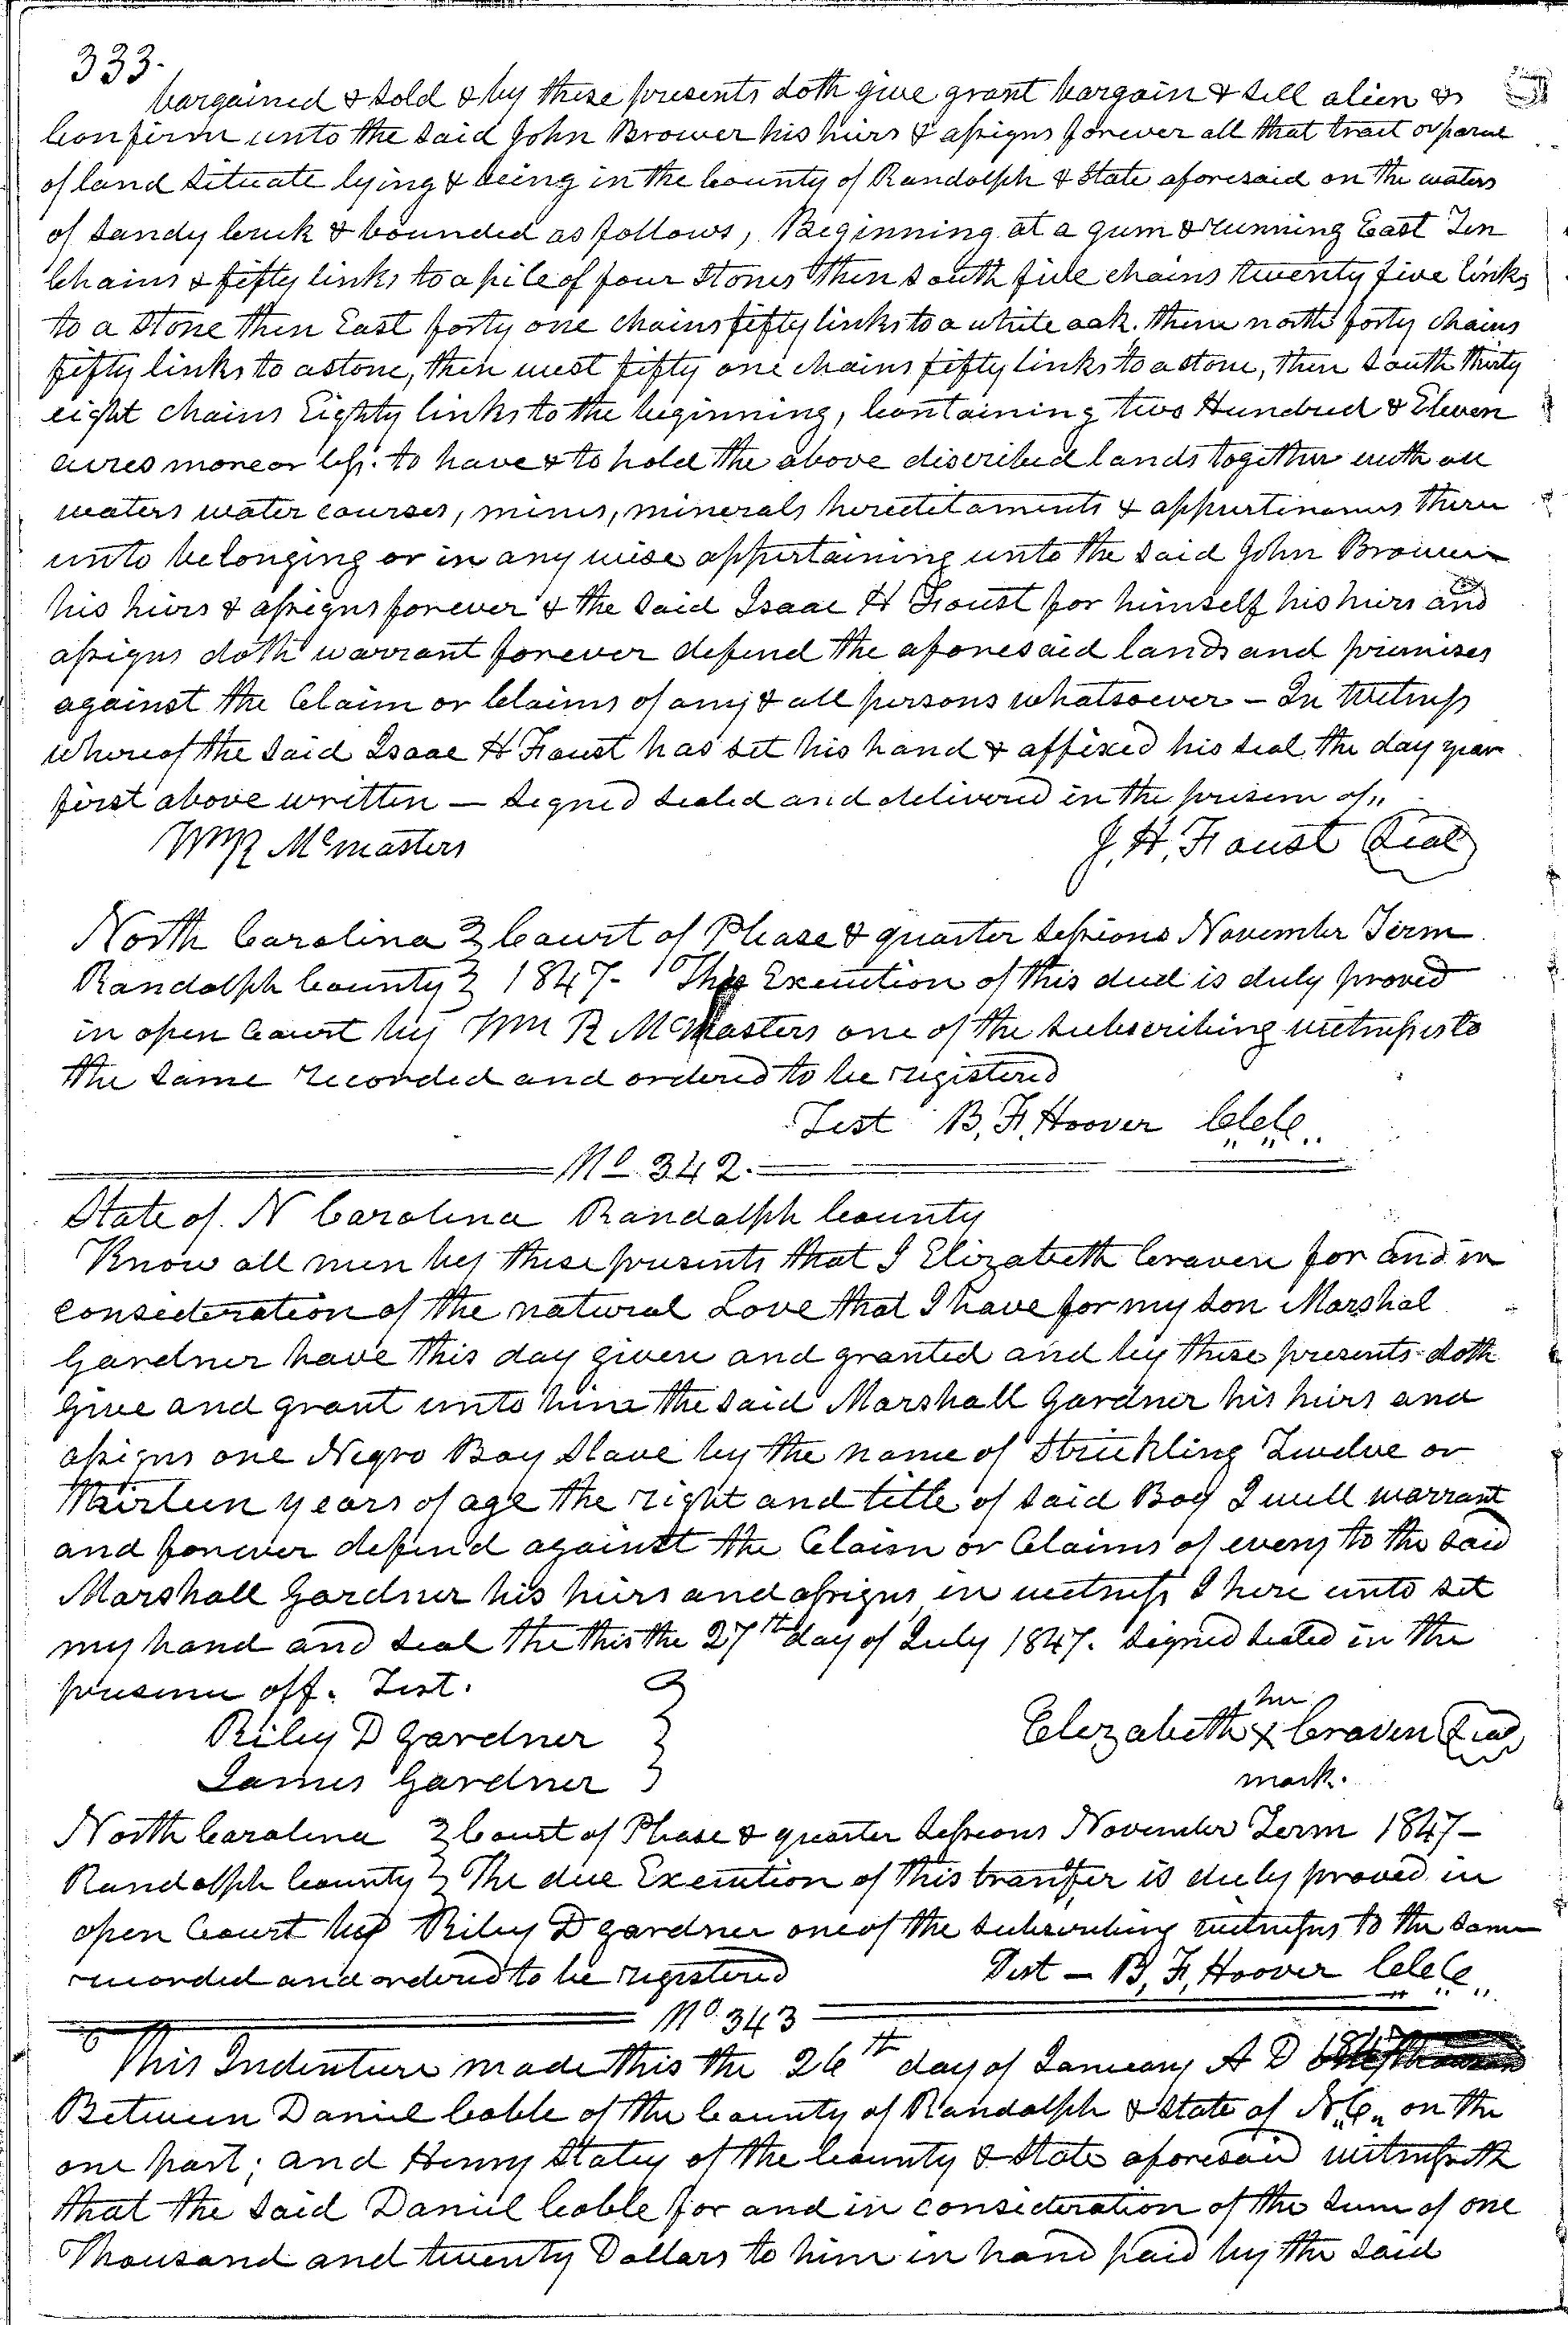 333.
bargained & sold & by these presents doth give grant bargain & sell alien &
confirm unto the said John Brower his heirs & assigns forever all that tract or parcel
of land situate lying & being in the County of Randolph & State aforesaid on the waters
of Sandy Creek & bounded as follows, Beginning at a gum & running East Ten
Chains & fifty links to a pile of four Stones then South five chains twenty five links
to a Stone then East forty one chains fifty links to a white oak. then north forty chains
fifty links to a stone, then west fifty one chains fifty links to a stone, then South thirty
eight chains Eighty links to the beginning, Containing two Hundred & Eleven
acres more or less. to have & to hold the above discribed lands together with all
waters water courses, mines, minerals heredetaments & appurtenances there
unto belonging or in any wise appertaining unto the said John Brower
his heirs & assigns forever & the said Isaac H Foust for himself his heirs and
assigns doth warrant forever defend the aforesaid lands and premises
against the Claim or Claims of any & all persons whatsoever - In Witness
whereof the said Isaac H Foust has set his hand & affixed his seal the day year
first above written - Signed sealed and delivered in the presence of "
Wm R McMasters J. H. Foust Seal
North Carolina } Court of Please & quarter Sessions November Term
Randolph County } 1847- The Execution of this deed is duly proved
in open Court by Wm R McMasters one of the subscribing witnesses to
the same recorded and ordered to be registered
Test B. F. Hoover C C C
No. 342.
State of N Carolina Randolph County
Know all men by these presents that I Elizabeth Craven for and in
consideration of the natural Love that I have for my son Marshal
Gardner have this day given and granted and by these presents doth
give and grant unto him the said Marshall Gardner his heirs and
assigns one Negro Boy Slave by the name of Strickling Twelve or
Thirteen years of age the right and title of said Boy I will warrant
and forever defend against the Claim or Claims of every to the said
Marshall Gardner his heirs and assigns in witness I here unto set
my hand and seal the this the 27th day of July 1847. Signed sealed in the
presence off. Test.
Riley D Gardner
James Gardner
her
Elizabeth X Craven Seal
mark.
North Carolina } Court of Please & quarter Sessions November Term 1847-
Randolph County } The due Execution of this transfer is duly proved in
open Court by Riley D Gardner one of the subscribing witnesses to the same
recorded and ordered to be registered Test - B. F. Hoover C C C
No. 343
This Indenture made this the 26th day of January A D
Between Daniel Coble of the County of Randolph & State of N.C. on the
one part; and Henry Staley of the County & State aforesaid witnesseth
that the said Daniel Coble for and in consideration of the sum of one
Thousand and twenty Dollars to him in hand paid by the said